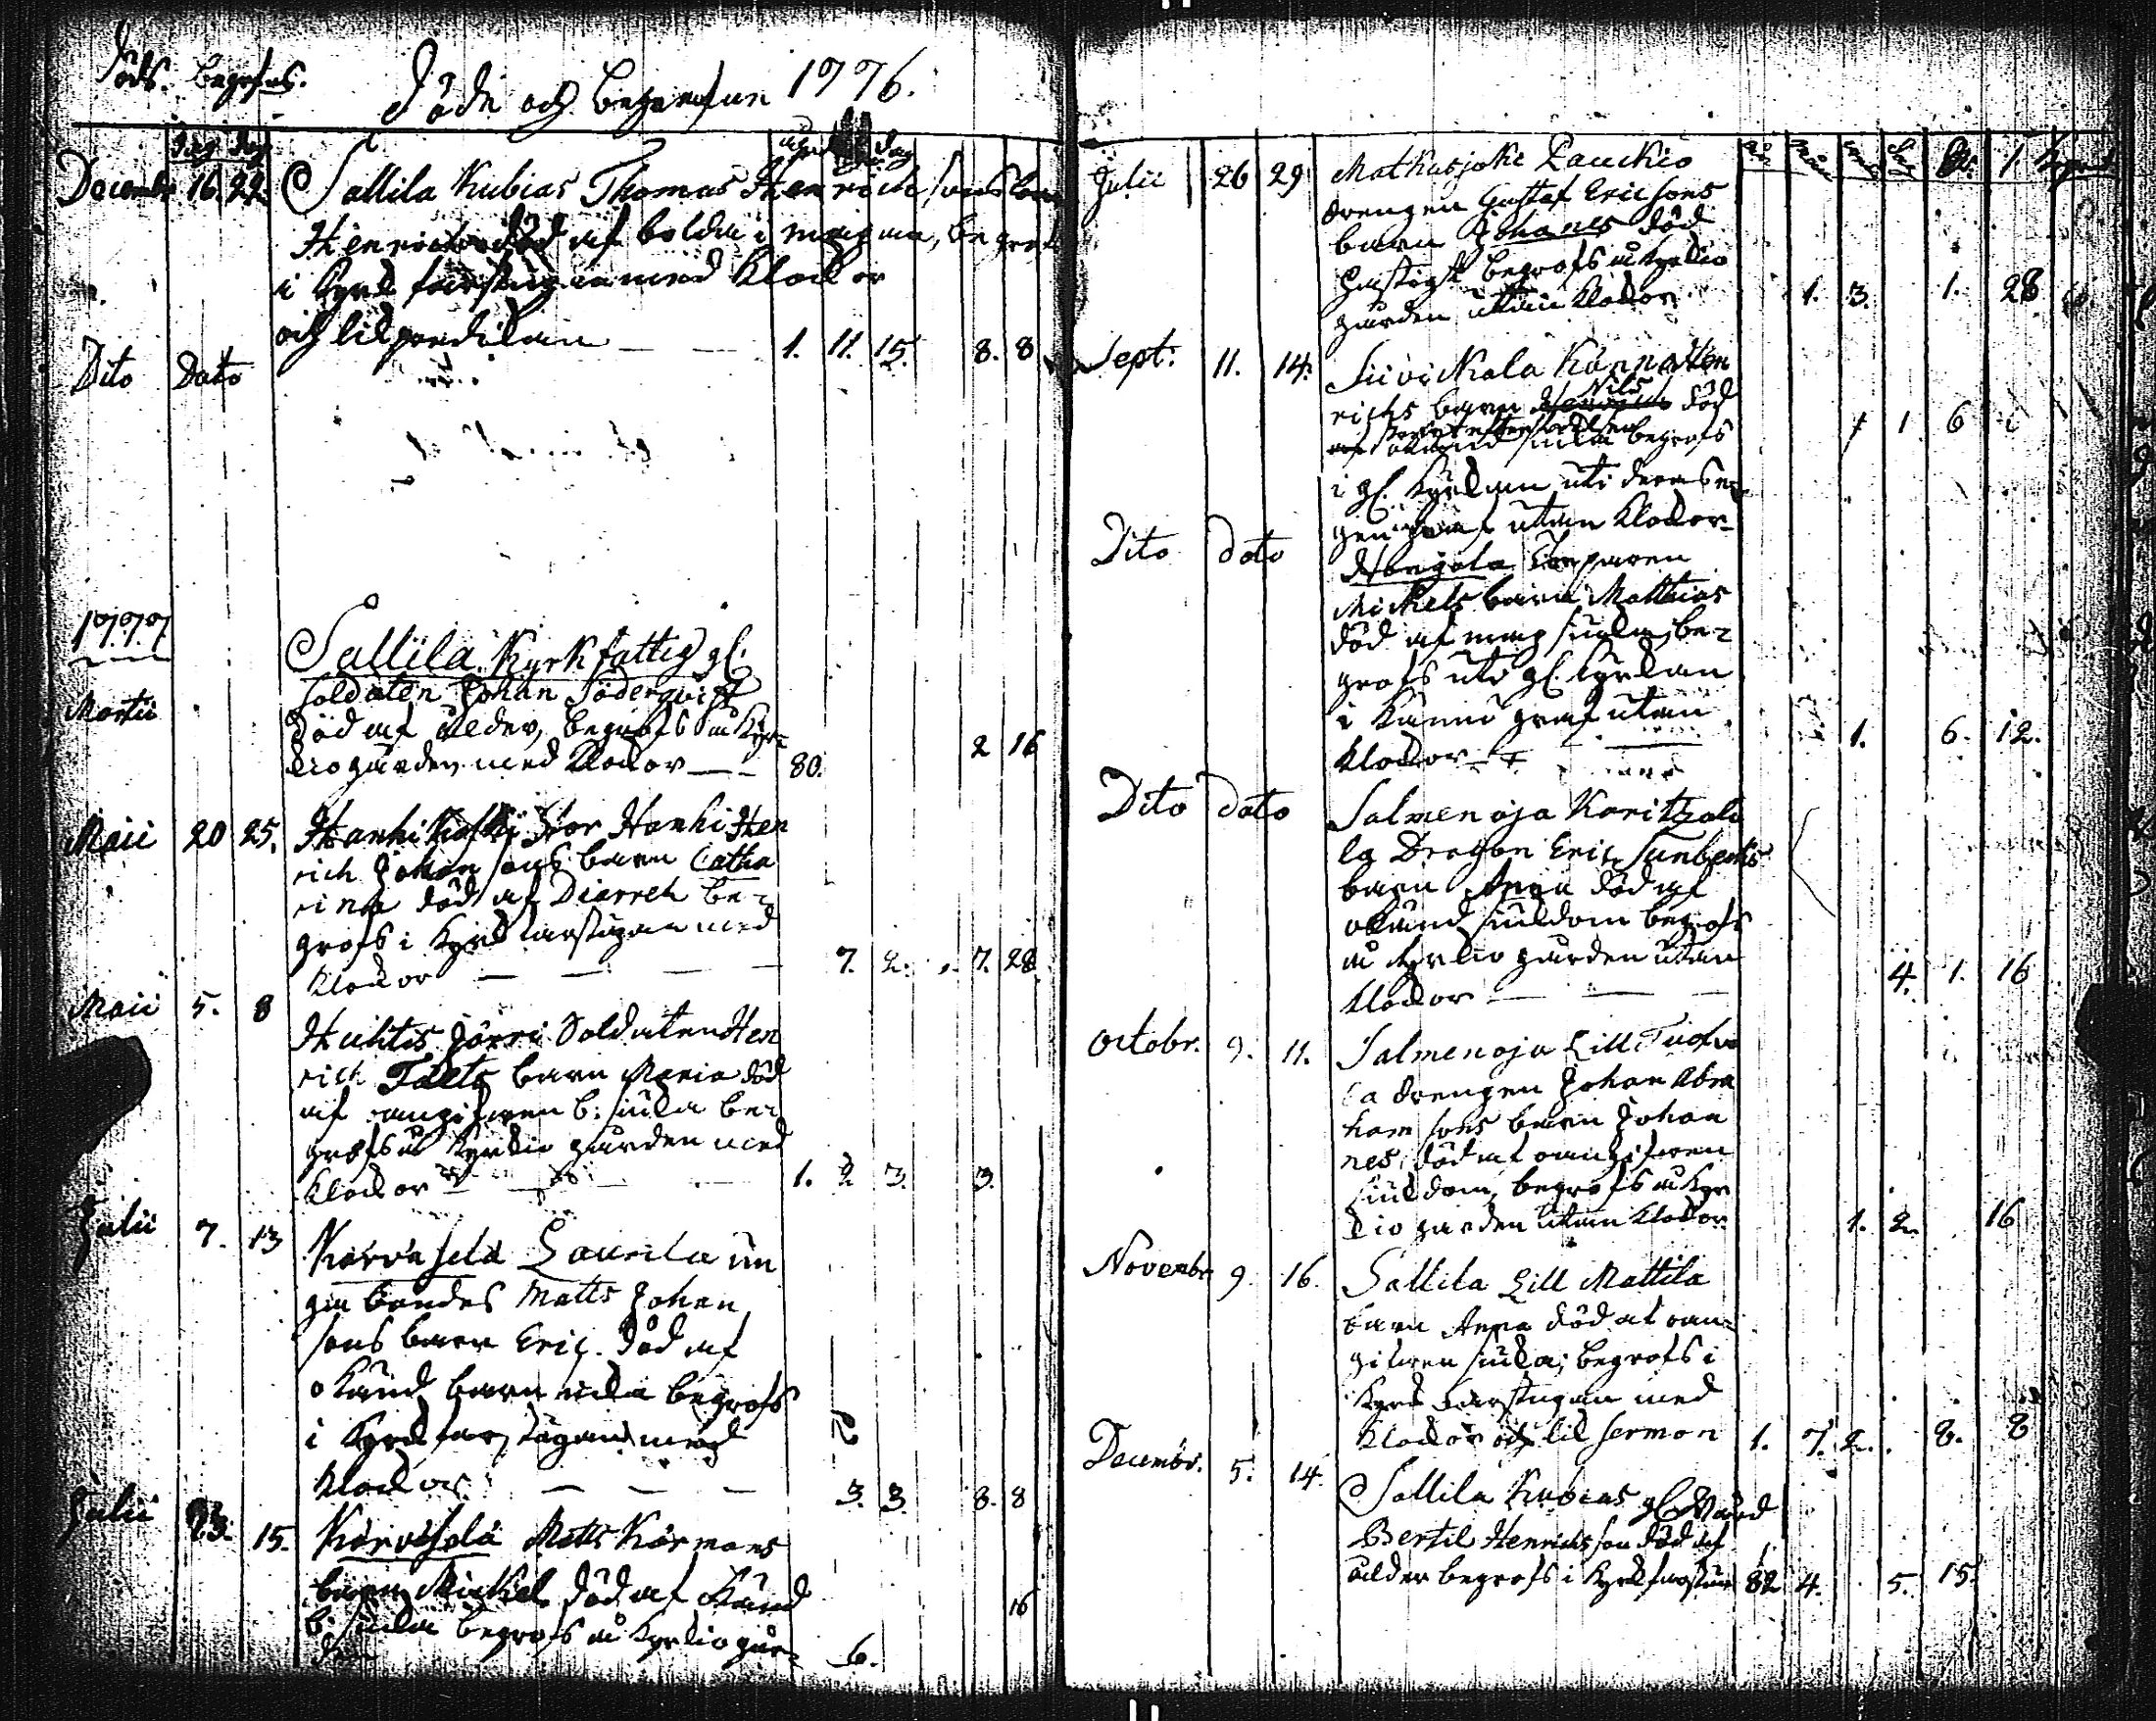 Döds. begrafns.
Döde och begrafne 1776.
Dag Dag
Decembr 16. 22. Sallila Kubias Thomas Henrich sons barn
Henric död af bolda i magan, begrofs
i Kyrk farstugan med Klockor
och lik predikan 1. 11. 15. 8. 8
Dito Dato
1777
Martii
Sallila Kyrk fattig gl.
Soldaten Johan Söderqvist
död af ålder, begrofs å Kyr=
kio gården med Klockor 80. 2 16
Maii 20 25. Hanhikoski Stor Hanhi Hen
rich Johan sons barn Catha
rina död af Diarreh be=
grofs i Kyrk farstugan med
Klockor 7. 2. 7. 28
Maii 5. 8
Huhtis Jörri Soldaten Hen
rich Fälts barn Maria död
af oangifwen b: siuka be=
grofs å Kyrkio gården med
Klockor 1. 2 3. 3.
Julii 7. 13
Korvasela Laurila un
ga bondes Matts Johan
sons barn Eric. död af
okänd barn siuka begrofs
i Kyrk farstugan med
Klockor 3. 3. 8. 8
Julii 23. 15. Korvasela Matts Kormans
barn Mickel död af Känd
b. siuka begrofs å Kyrkio går=
den 6. 16
år mån wek. dag
Julii 26 29 Mathusjoki Lauckio
drengen Gustaf Ericsons
barn Johanes död
hastigt begrofs å Kyrkio
gården utan Klockor. 1. 3. 1. 28
Sept: 11. 14. Suivickala Kånno Hen
richs barn Nils död
siuka begrofs 1 6
i gl. Kyrkan uti deras e
gen graf utan Klockor
Dito dato
Torparen
Mickels barn Matthias
död af mag siuka, be=
grofs uti gl. Kyrkan
i Kånno graf utan
Klockor 1. 6. 12.
Dito dato Salmenoja Karitzala
la Dragon Eric Sunbergs
barn Anna död af
okänd siukdom begrofs
å Kyrkio gården utan
Klockor 4. 1. 16
Octobr. 9. 11. Salmenoja Lill
la drengen Johan Abra
ham sons barn Johan
nes, död af oangifwen
siukdom, begrofs å Kyr
kio garden utan Klockor 1. 2. 16
Novembr 9. 16. Sallila Lill Mattila
barn Anna död af oan=
gifwen siuka; begrofs i
Kyrk farstugan med
Klockor och lik sermon 1. 7. 2. 8. 8
Decembr. 5. 14.
Sallila Kubias gl
Bertil Henrichsson död af
ålder begrofs i Kyrk farstun 82 4. 5. 15.